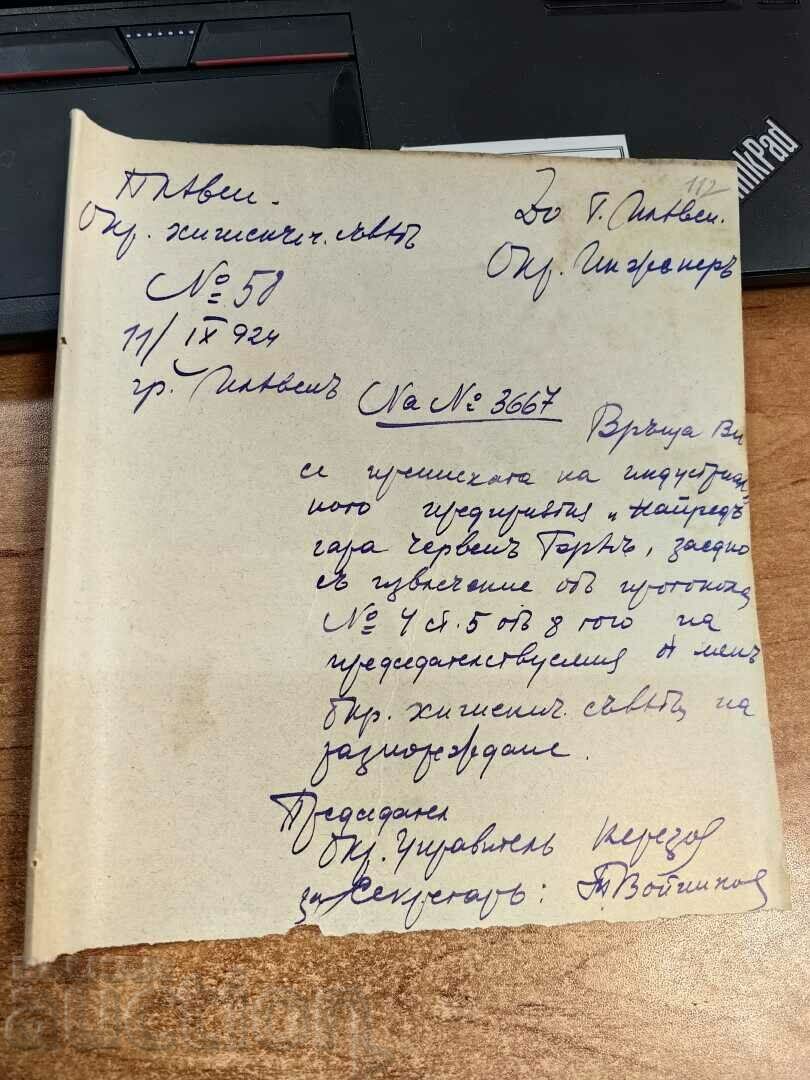 112
Плѣвен.
Окр. хигиенич. съвѣтъ
№ 58
11/IX 924
гр. Плѣвенъ
До Г. Плѣвен.
Окр. Инженеръ
На № 3667
Връща Ви
се преписката на индустриал-
ното предприятия „Напредъ"
гара Червенъ Брѣгъ, заедно
съ извлечение отъ протокола
№ 4 ст. 5 отъ 8 того на
председателствуемия от менъ
Окр. хигиенич. съвѣтъ на
разпореждане.
Председател
Окр. Управитель
за Секретарь: Войников
ThinkPad
auction